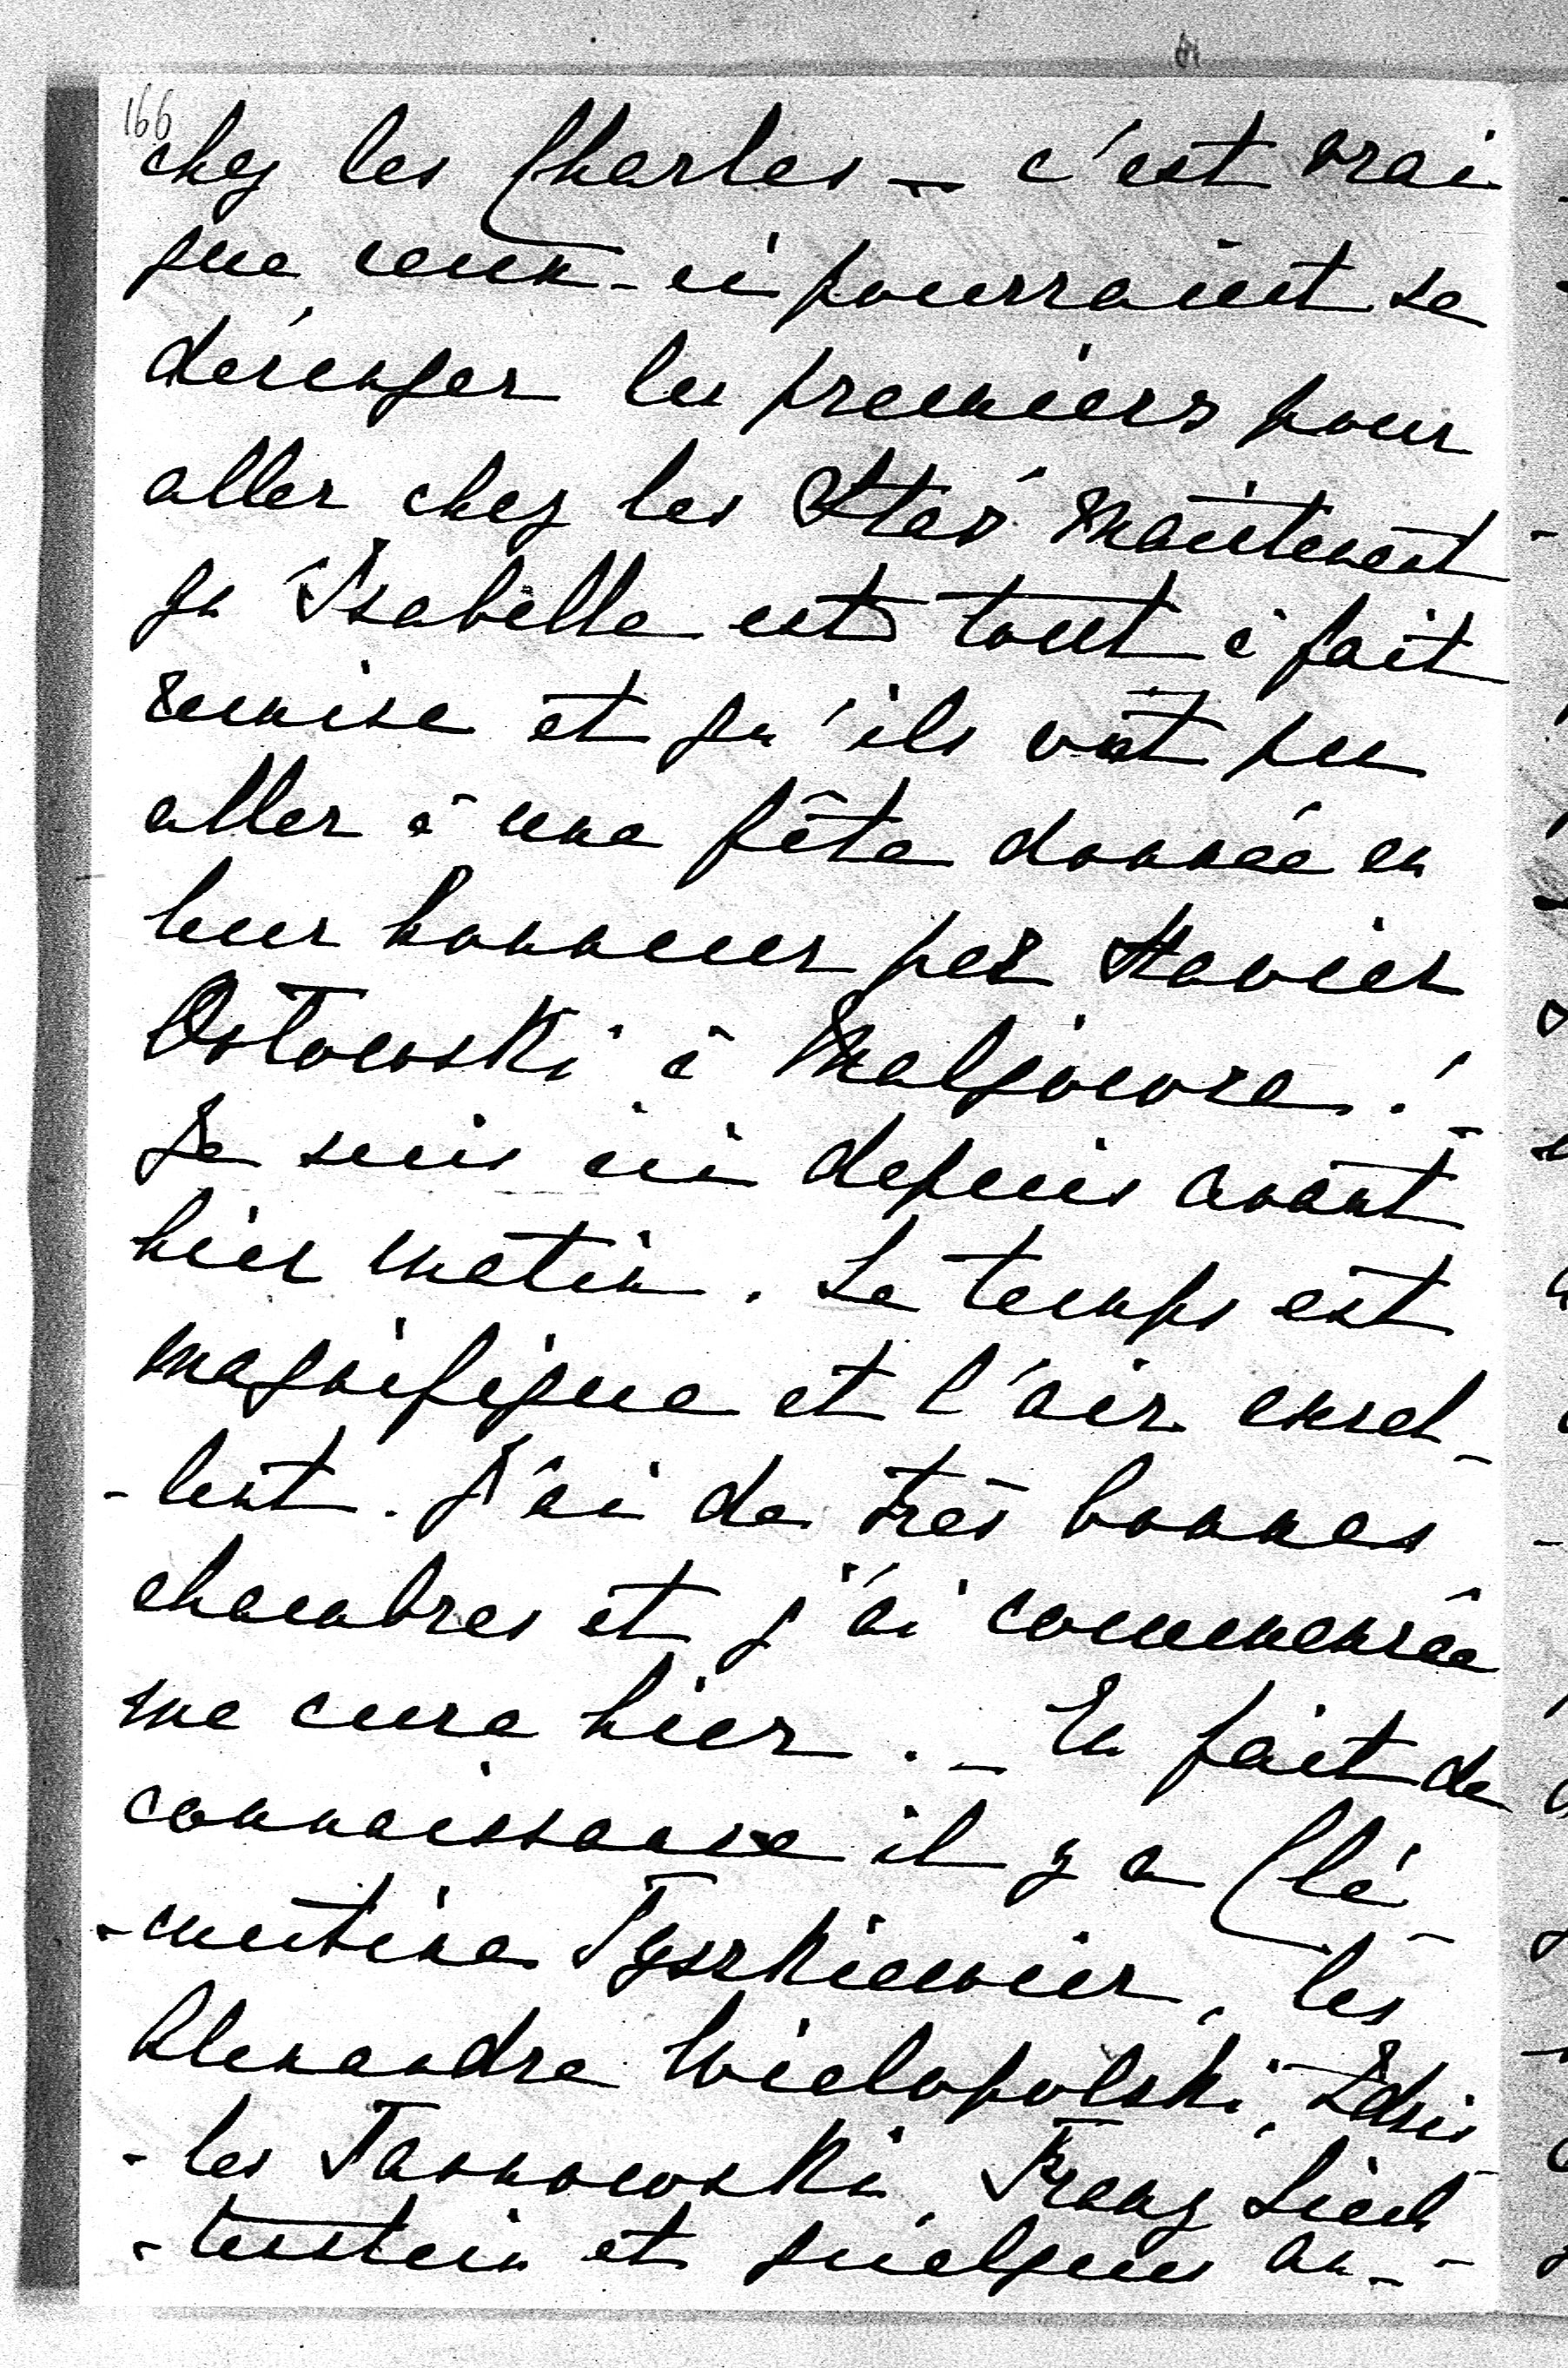 166
chez les Charles – c'est vrai
que ceux-ci pourraient se
déranger les premiers pour
aller chez les Stas' maintenant
qu'Isabelle est tout à fait
remise et qu'ils ont pu
aller à une fête donnée en
leur honneur par Xavier
Orłowski à Malejowce !
Je suis ici depuis avant
hier matin. Le temps est
magnifique et l'air excel-
-lent. J'ai de très bonnes
chambres et j'ai commencée
ma cure hier. – En fait de
connaissance il y a Clé-
-mentine Tyszkiewicz, les
Alexandre Wielopolski, Zdzis
-les Tarnowski, Franz Liech-
-tenstein et quelques au-